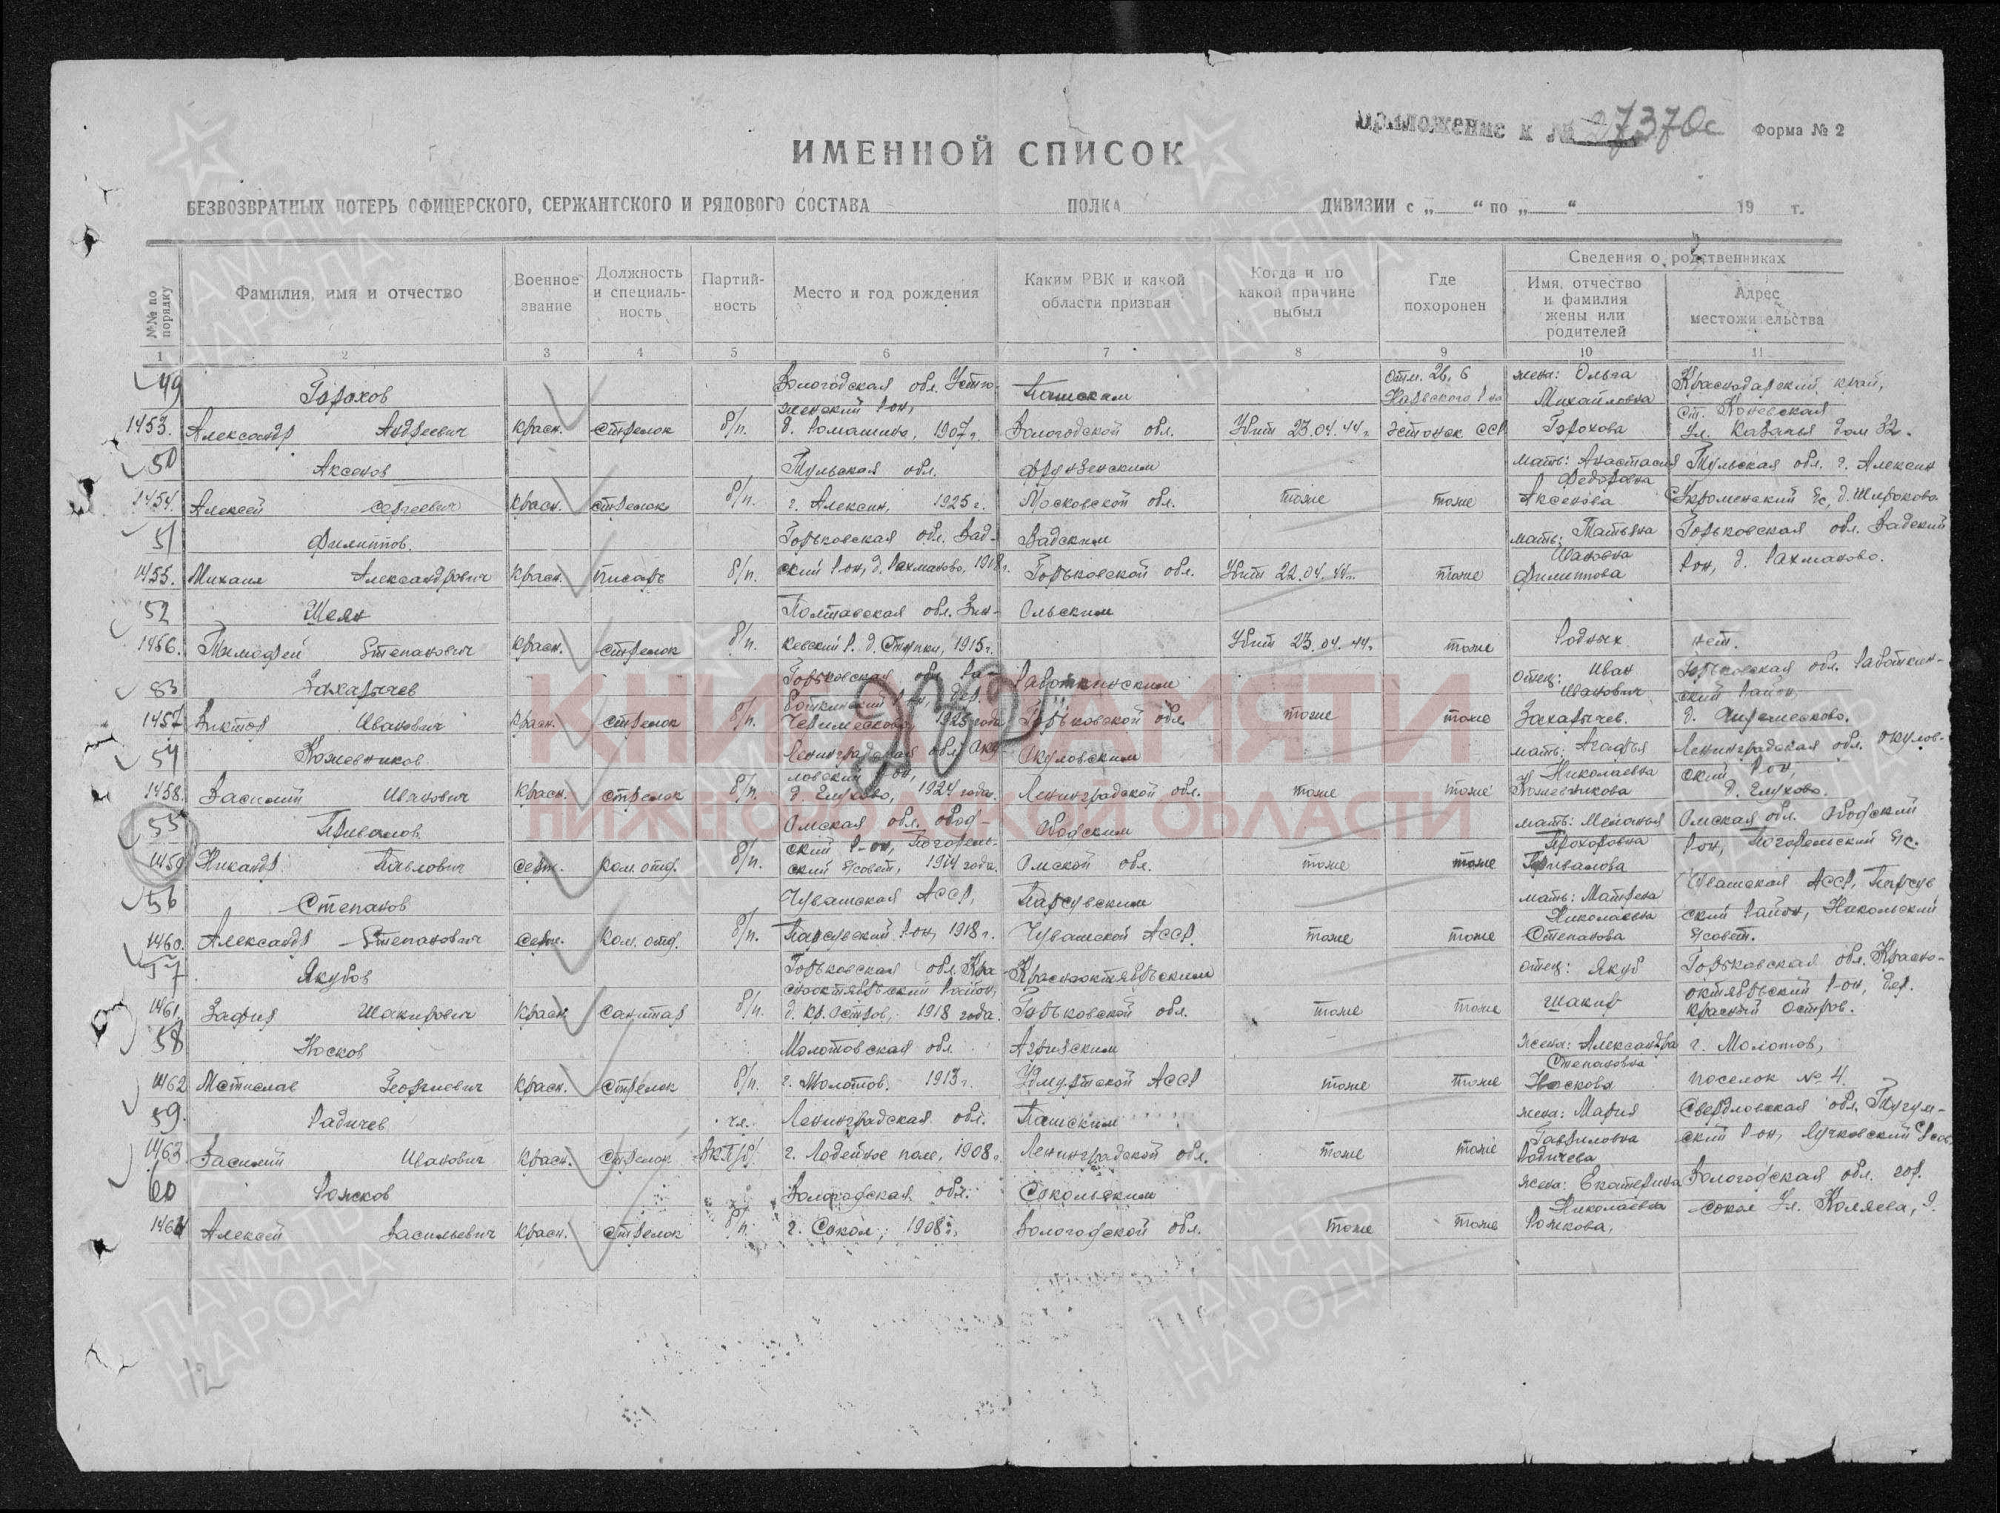 Приложение к № 27370с Форма № 2
ИМЕННОЙ СПИСОК
БЕЗВОЗВРАТНЫХ ПОТЕРЬ ОФИЦЕРСКОГО, СЕРЖАНТСКОГО И РЯДОВОГО СОСТАВА ПОЛКА ДИВИЗИИ с „ “ по „ “ 19 г.
№№ по порядку
Фамилия, имя и отчество
Военное звание
Должность и специальность
Партийность
Место и год рождения
Каким РВК и какой области призван
Когда и по какой причине выбыл
Где похоронен
Сведения о родственниках
Имя, отчество и фамилия жены или родителей
Адрес местожительства
1 2 3 4 5 6 7 8 9 10 11
49 Горохов Вологодская обл. Устю- Пашским отм. 26,6 жена: Ольга Краснодарский край,
женский р-он, Нарвского р-на Михайловна ст. Каневская
1453. Александр Андреевич красн. стрелок б/п. д. Ромашино, 1907 г. Вологодской обл. Убит 23.04.44 г. Эстонск ССР Горохова ул. Казачья дом 32.
50 Аксенов Тульская обл. Фрунзенским мать: Анастасия Тульская обл. г. Алексин
Федоровна
1454. Алексей Сергеевич красн. стрелок б/п. г. Алексин, 1925 г. Московской обл. тоже тоже Аксенова
51 Филиппов Горьковская обл. Вад- Вадским мать: Татьяна Горьковская обл. Вадский
Ивановна
1455. Михаил Александрович красн. писарь б/п. ский р-он, д. Рахманово, 1918 г. Горьковской обл. Убит 22.04.44 г. тоже Филиппова р-он, д. Рахманово.
52 Шеян Полтавская обл. Зин- Ольским
1456. Тимофей Степанович красн. стрелок б/п. 1915 г. Убит 23.04.44 г. тоже Родных нет.
53 Захарычев Горьковская обл. Ра- Работкинским отец: Иван Горьковская обл. Работкин-
Иванович ский район,
1457 Виктор Иванович красн. стрелок б/п. 1925 года Горьковской обл. тоже тоже Захарычев.
54 Кожевников Ленинградская обл. Оку- Окуловским мать: Агафья Ленинградская обл. Окулов-
ловский р-он, Николаевна ский р-он,
1458. Василий Иванович красн. стрелок б/п. д. Глухово, 1924 года. Ленинградской обл. тоже тоже Кожевникова д. Глухово.
55 Привалов Омская обл. мать: Меланья Омская обл.
ский р-он, Прохоровна
1459 Никандр Павлович серж. ком. отд. б/п. ский с/совет, 1914 года. Омской обл. тоже тоже Привалова
56 Степанов Чувашская АССР, мать: Матрена Чувашская АССР,
Николаевна ский район, Никольский
1460. Александр Степанович серж. ком. отд. б/п. 1918 г. Чувашской АССР тоже тоже Степанова с/совет.
57 Якубов Горьковская обл. Кра- Краснооктябрьским отец: Якуб Горьковская обл. Красно-
снооктябрьский район, октябрьский р-он, дер.
1461. Зафия Шакирович красн. санитар б/п. д. Кр. Остров, 1918 года. Горьковской обл. тоже тоже Шакир Красный Остров.
58 Носков Молотовская обл. жена: Александра г. Молотов,
Степановна
1462 Мстислав Георгиевич красн. стрелок б/п. г. Молотов. 1913 г. Удмуртской АССР тоже тоже Носкова поселок № 4.
59. Радичев чл. Ленинградская обл. Пашским жена: Мария Свердловская обл. Тугулым-
Гавриловна
1463 Василий Иванович красн. стрелок ВКП(б) г. Лодейное поле, 1908 г. Ленинградской обл. тоже тоже Радичева
60 Рожков Вологодская обл. Сокольским жена: Екатерина Вологодская обл. гор.
Николаевна
1464 Алексей Васильевич красн. стрелок б/п. г. Сокол, 1908 г. Вологодской обл. тоже тоже Рожкова.
12
КНИГА ПАМЯТИ
НИЖЕГОРОДСКОЙ ОБЛАСТИ
ПАМЯТЬ НАРОДА